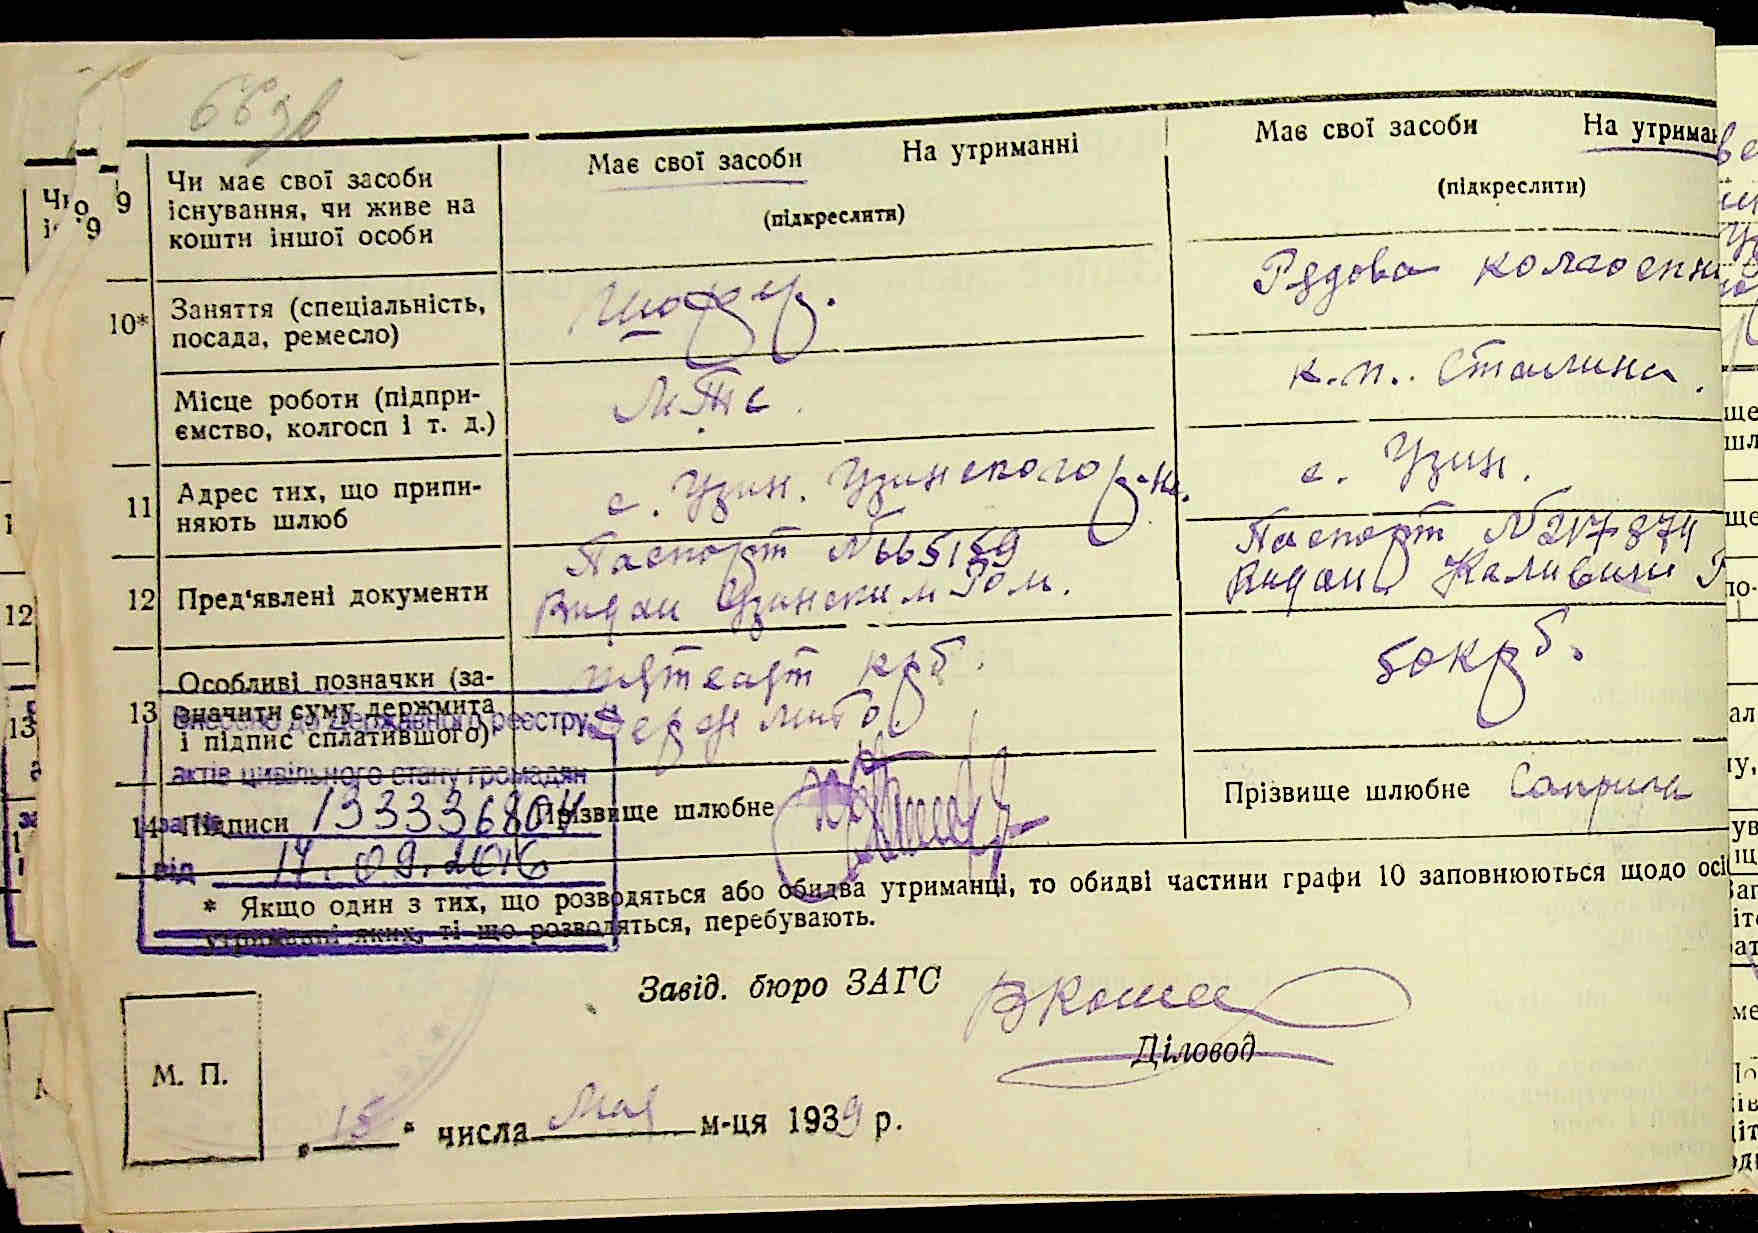 Чи має свої засоби
існування, чи живе на
кошти іншої особи
Має свої засоби На утриманні
(підкреслити)
Має свої засоби На утриман
(підкреслити)
10* Заняття (спеціальність,
посада, ремесло)
Шофер.
Рядова колгоспни
Місце роботи (підпри-
ємство, колгосп і т. д.)
МТС
к-п. Сталина.
11 Адрес тих, що припи-
няють шлюб
с. Узин. Узинского р-на.
с. Узин.
12 Пред'явлені документи
Паспорт №665159
Видан Узинским Ром.
Паспорт №217874
Видан
13 Особливі позначки (за-
значити суму держмита
і підпис сплатившого)
крб.
держмито
50крб.
Внесено до Державного реєстру
актів цивільного стану громадян
за №
від 17.09.2016
14 Підписи
Прізвище шлюбне
Прізвище шлюбне
* Якщо один з тих, що розводяться або обидва утриманці, то обидві частини графи 10 заповнюються щодо осі
утриманні яких, ті що розводяться, перебувають.
Завід. бюро ЗАГС
Діловод
М. П.
„15“ числа Мая м-ця 1939 р.